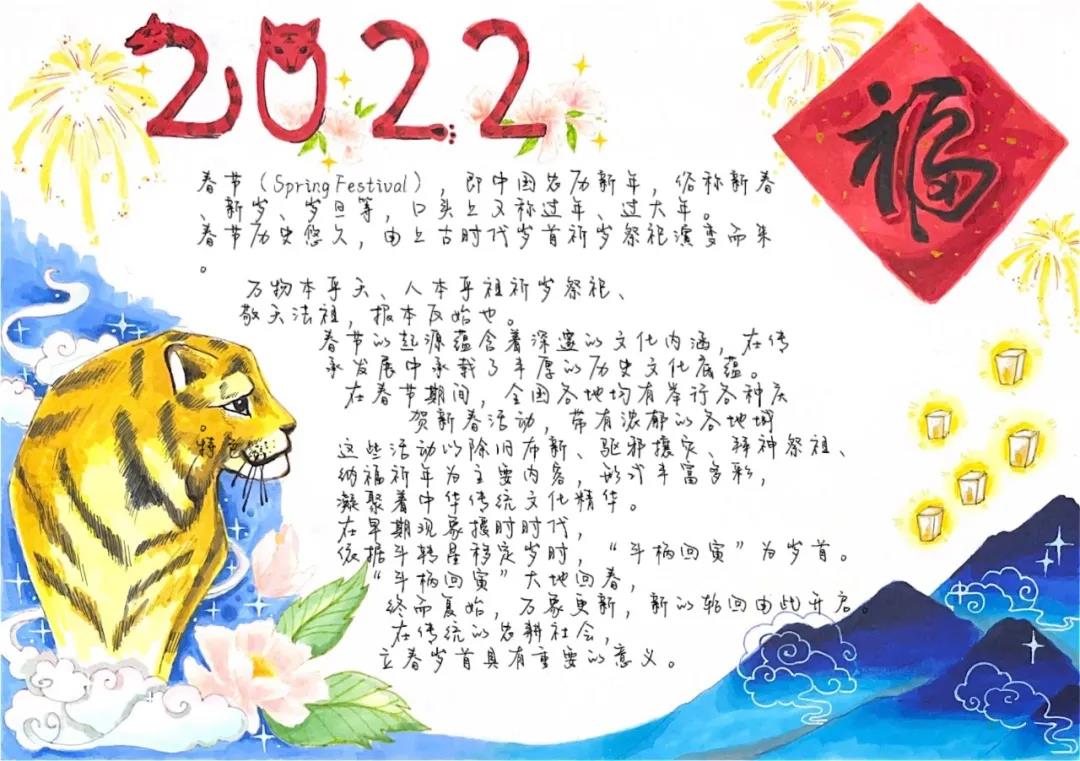 2022
福
春节（Spring Festival），即中国农历新年，俗称新春
、新岁、岁旦等，口头上又称过年、过大年。
春节历史悠久，由上古时代岁首祈岁祭祀演变而来
。
万物本乎天、人本乎祖祈岁祭祀、
敬天法祖，报本反始也。
春节的起源蕴含着深邃的文化内涵，在传
承发展中承载了丰厚的历史文化底蕴。
在春节期间，全国各地均有举行各种庆
贺新春活动，带有浓郁的各地域
特色。
这些活动以除旧布新、驱邪攘灾、拜神祭祖、
纳福祈年为主要内容，形式丰富多彩，
凝聚着中华传统文化精华。
在早期观象授时时代，
依据斗转星移定岁时，“斗柄回寅”为岁首。
“斗柄回寅”大地回春，
终而复始，万象更新，新的轮回由此开启。
在传统的农耕社会，
立春岁首具有重要的意义。